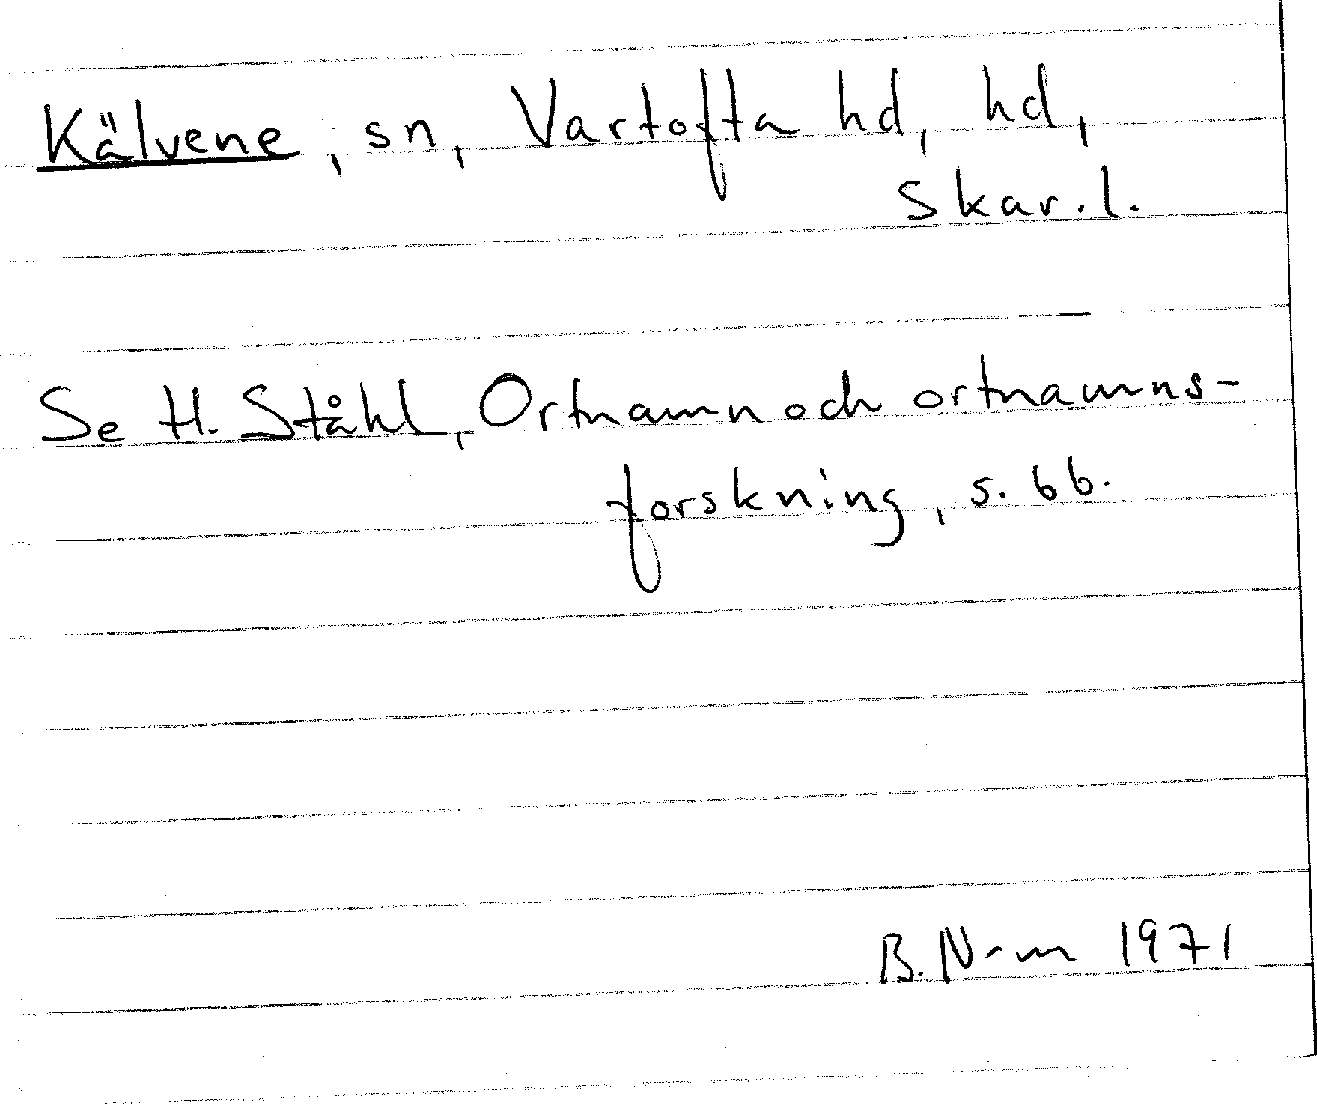 Kälvene, sn, Vartofta hd, hd,
Skar.l.
Se H. Ståhl, Ortnamn och ortnamns-
forskning, s. 66.
B. N-m 1971